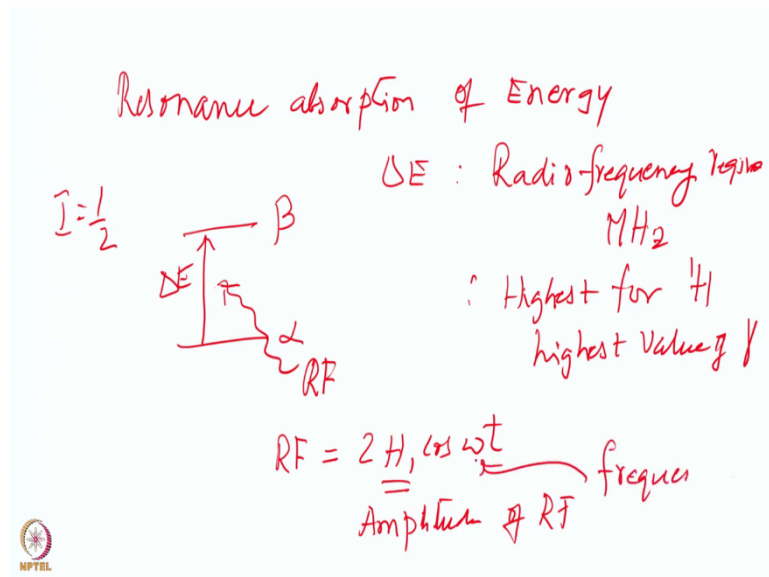 Resonance absorption of Energy
ΔE : Radio-frequency
I=1/2
β
MHz
ΔE
: Highest for ¹H
α
highest value of γ
RF
RF = 2H₁ cos ωt
freque
Amplitude of RF
NPTEL